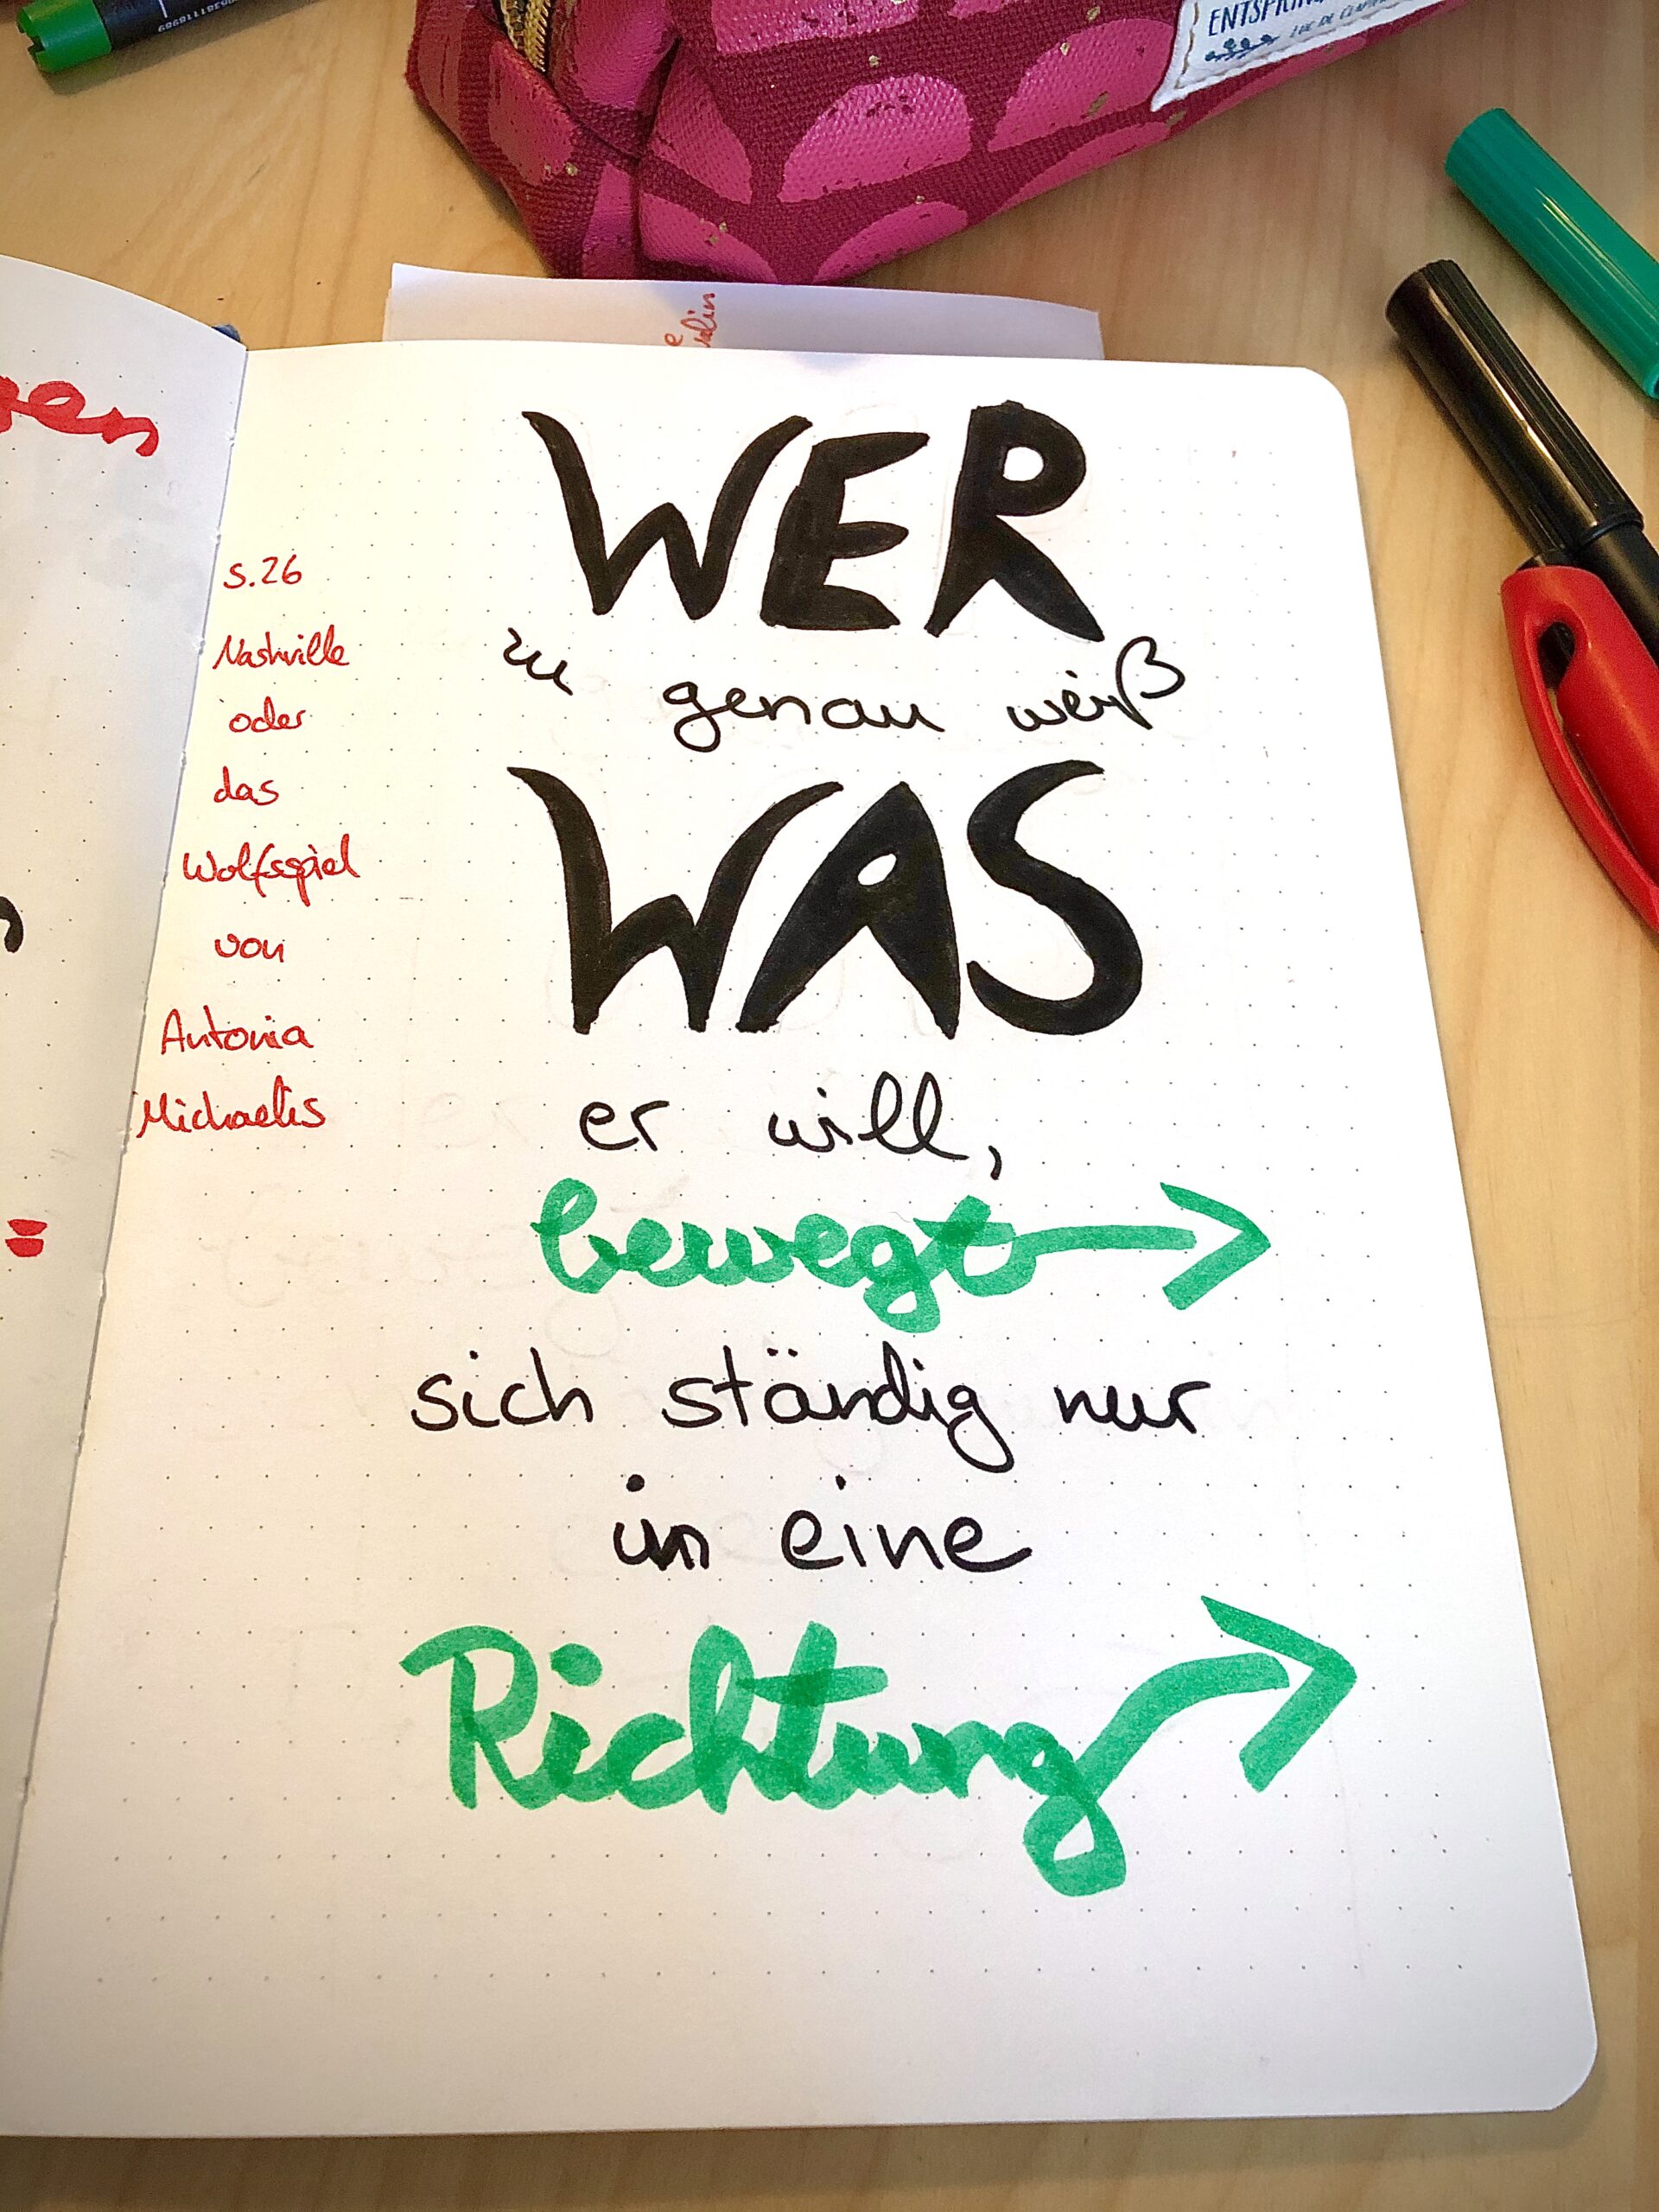 ENTSPRIN
gen
s.26
Nashville
oder
das
Wolfsspiel
von
Antonia
Michaelis
WER
zu genau weiß
WAS
er will,
bewegt
sich ständig nur
in eine
Richtung